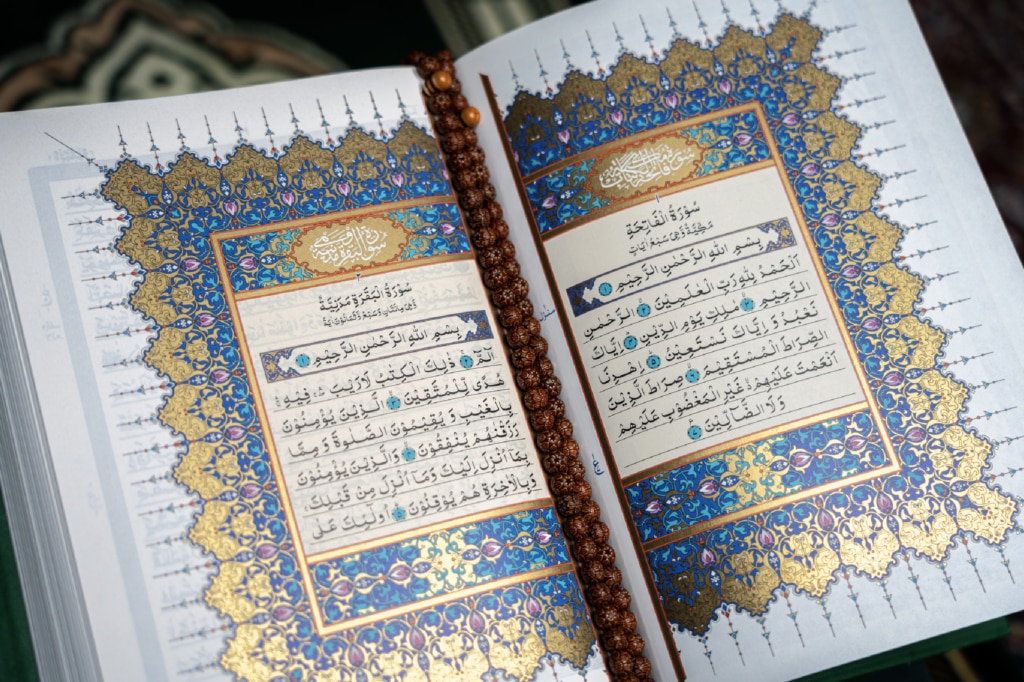 سورة فاتحة الكتاب
١
سُوْرَةُ الْفَاتِحَةِ
مَكِّيَّةٌ وَّهِيَ سَبْعُ اٰيَاتٍ
بِسْمِ اللهِ الرَّحْمٰنِ الرَّحِيْمِ ١
اَلْحَمْدُ لِلّٰهِ رَبِّ الْعٰلَمِيْنَ ٢ الرَّحْمٰنِ
الرَّحِيْمِ ٣ مٰلِكِ يَوْمِ الدِّيْنِ ٤ اِيَّاكَ
نَعْبُدُ وَ اِيَّاكَ نَسْتَعِيْنُ ٥ اِهْدِنَا
الصِّرَاطَ الْمُسْتَقِيْمَ ٦ صِرَاطَ الَّذِيْنَ
اَنْعَمْتَ عَلَيْهِمْ غَيْرِ الْمَغْضُوْبِ عَلَيْهِمْ
وَلَا الضَّآلِّيْنَ ٧
منزل
ع
٢
سُوْرَةُ الْبَقَرَةِ مَدَنِيَّةٌ
وَهِيَ مِائَتَانِ وَسَبْعٌ وَّثَمَانُوْنَ اٰيَةً
بِسْمِ اللهِ الرَّحْمٰنِ الرَّحِيْمِ ١
الٓمّٓ ٢ ذٰلِكَ الْكِتٰبُ لَا رَيْبَ فِيْهِ
هُدًى لِّلْمُتَّقِيْنَ ٣ الَّذِيْنَ يُؤْمِنُوْنَ
بِالْغَيْبِ وَ يُقِيْمُوْنَ الصَّلٰوةَ وَ مِمَّا
رَزَقْنٰهُمْ يُنْفِقُوْنَ ٤ وَالَّذِيْنَ يُؤْمِنُوْنَ
بِمَا اُنْزِلَ اِلَيْكَ وَمَا اُنْزِلَ مِنْ قَبْلِكَ
وَبِالْاٰخِرَةِ هُمْ يُوْقِنُوْنَ ٥ اُولٰٓئِكَ عَلٰى